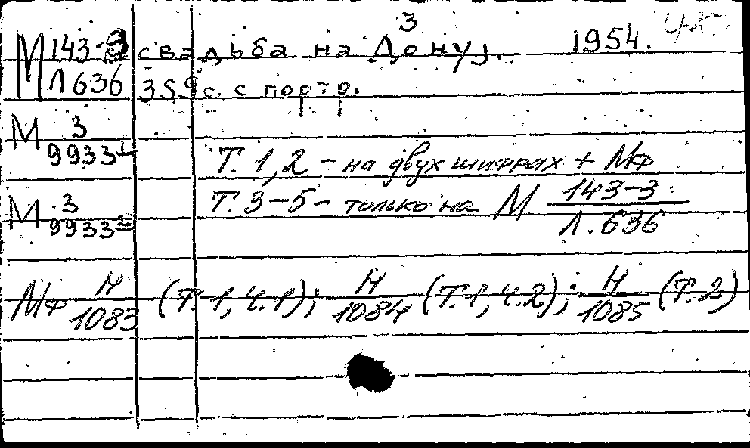 М 143-3 свадьба на Дону]. 3 1954.
Л 636 359 с. с портр.
М 3
9933 1
Т. 1, 2 – на двух шифрах + Мф
М 3 Т. 3-5 – только на М 143-3
9933 2 Л. 636
Мф Н/1083 (Т.1, ч.1); Н/1084 (Т.1, ч.2); Н/1085 (Т.2)